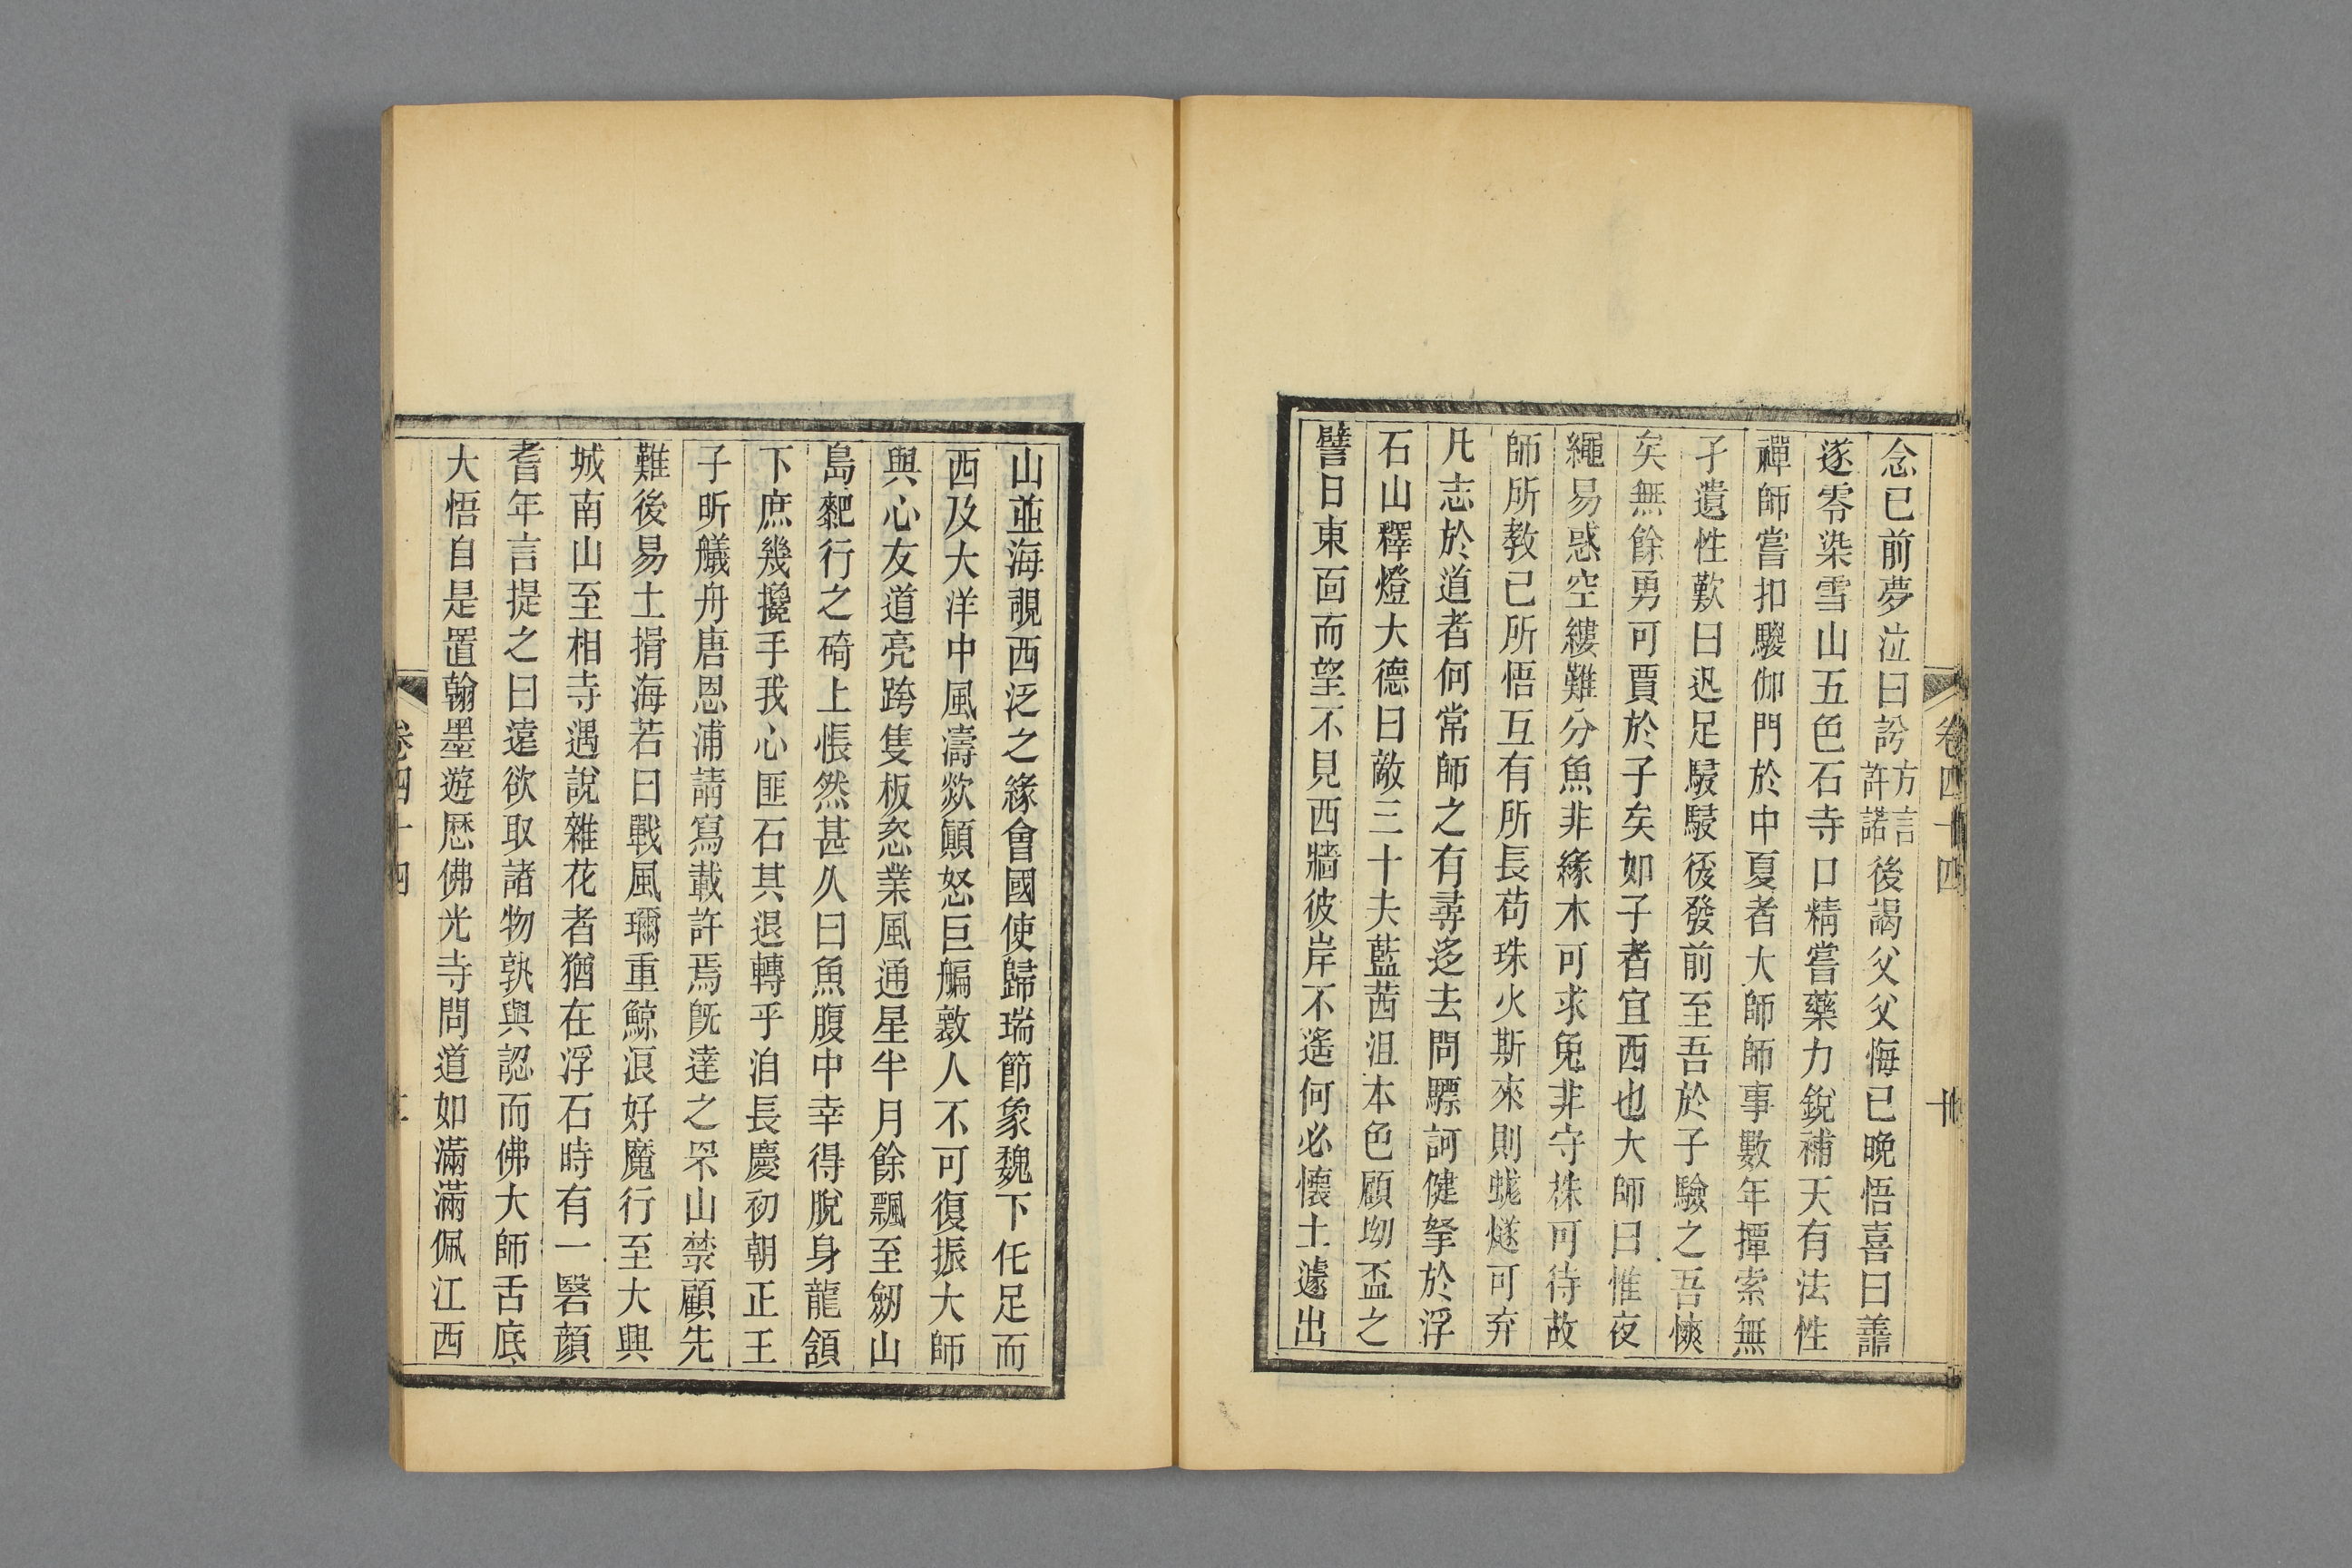 念已前夢泣曰訡方言許諾後謁父父悔已晚悟喜曰譱
遂零染雪山五色石寺口精嘗藥力銳補天有法性
禪師嘗扣騣伽門於中夏者大師師事數年撢索無
孑遺性歎曰迅足駸駸後發前至吾於子驗之吾㥦
矣無餘勇可賈於子矣如子者宜西也大師曰惟夜
繩易惑空縷難分魚非緣木可求兔非守株可待故
師所教己所悟互有所長苟珠火斯來則蚌燧可弃
凡志於道者何常師之有尋迻去問驃訶健拏於浮
石山釋燈大德曰敵三十夫藍茜沮本色顧坳盃之
譬曰東面而望不見西牆彼岸不遙何必懷土遽出
卷四十四
十
山並海覗西泛之緣會國使歸瑞節象魏下佗足而
西及大洋中風濤欻顚怒巨艑斁人不可復振大師
與心友道亮跨隻板恣業風通星半月餘飄至劒山
島䵱行之碕上悵然甚久曰魚腹中幸得脫身龍頷
下庶幾攙手我心匪石其退轉乎洎長慶初朝正王
子昕艤舟唐恩浦請寫載許焉旣達之罘山禁顧先
難後易土揖海若曰戰風瓓重鯨浪好魔行至大興
城南山至相寺遇說雜花者猶在浮石時有一䃜顔
耆年言提之曰遠欲取諸物孰與認而佛大師舌底
大悟自是置翰墨遊歷佛光寺問道如滿滿佩江西
卷四十四